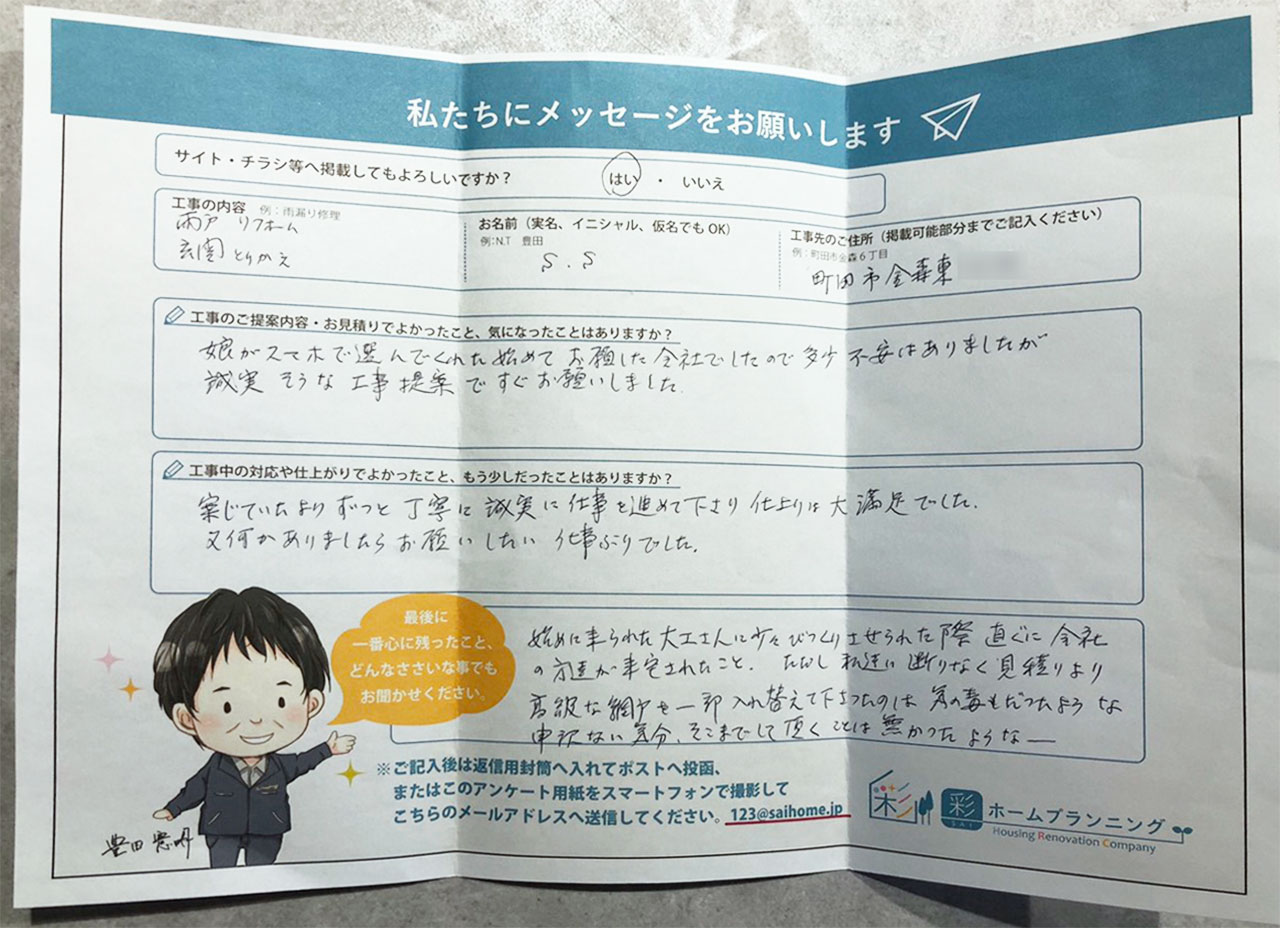 私たちにメッセージをお願いします
サイト・チラシ等へ掲載してもよろしいですか？ はい ・ いいえ
工事の内容 例：雨漏り修理
雨戸 リフォーム
玄関 とりかえ
お名前（実名、イニシャル、仮名でもOK）
例：N.T 豊田
S.S
工事先のご住所（掲載可能部分までご記入ください）
例：町田市金森６丁目
町田市金森東
工事のご提案内容・お見積りでよかったこと、気になったことはありますか？
娘がスマホで選んでくれた始めてお願した会社でしたので多少不安はありましたが
誠実そうな工事提案ですぐお願いしました。
工事中の対応や仕上がりでよかったこと、もう少しだったことはありますか？
案じていたよりずっと丁寧に誠実に仕事を進めて下さり仕上りは大満足でした。
又何かありましたらお願いしたい仕事ぶりでした。
最後に
一番心に残ったこと、
どんなささいな事でも
お聞かせください。
始めに来られた大工さんに少々びっくりさせられた際直ぐに会社
の方達が来宅されたこと。ただし私達に断りなく見積りより
高級な網戸を一部入れ替えて下さったのは気の毒もだったような
申訳ない気分、そこまでして頂くことは無かったようなー
※ご記入後は返信用封筒へ入れてポストへ投函、
またはこのアンケート用紙をスマートフォンで撮影して
こちらのメールアドレスへ送信してください。123@saihome.jp
豊田
彩 彩 SAI ホームプランニング
Housing Renovation Company